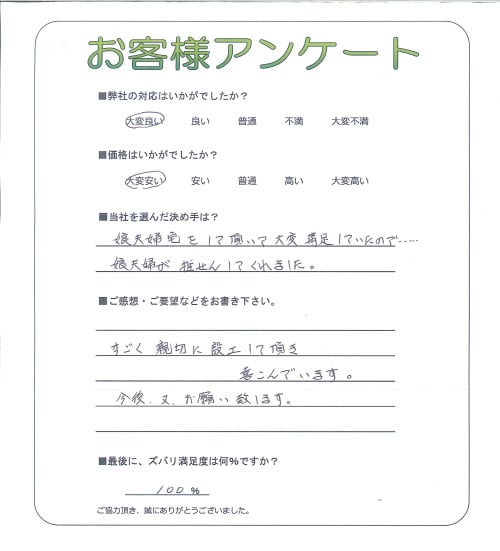 お客様アンケート
■弊社の対応はいかがでしたか？
大変良い 良い 普通 不満 大変不満
■価格はいかがでしたか？
大変安い 安い 普通 高い 大変高い
■当社を選んだ決め手は？
娘夫婦宅をして頂いて大変満足していたので……
娘夫婦が推せんしてくれました。
■ご感想・ご要望などをお書き下さい。
すごく親切に設工して頂き
喜こんでいます。
今後、又、お願い致します。
■最後に、ズバリ満足度は何％ですか？
100％
ご協力頂き、誠にありがとうございました。